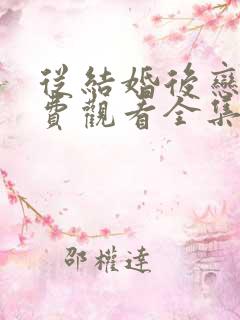 從結婚後戀
費觀看全集
邵權達